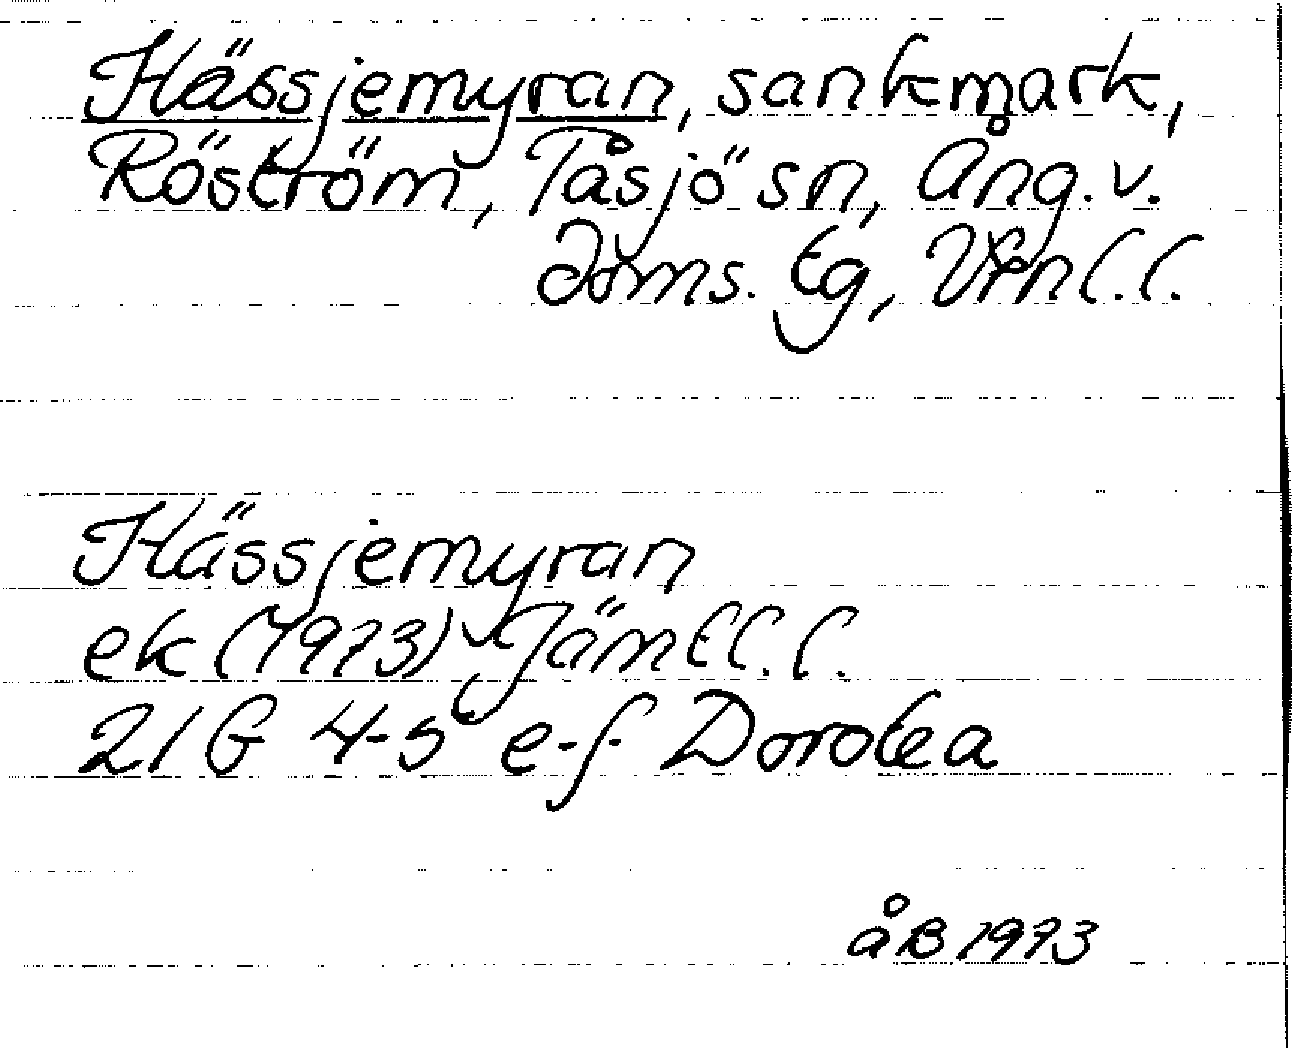 Hässjemyran, sankmark,
Röström, Tåsjö sn, Ång.v.
Doms. Eg, Vfnl.l.
Hässjemyran
ek (1973) Jämtl.l.
21G 4-5 e-f Dorotea
åB 1973